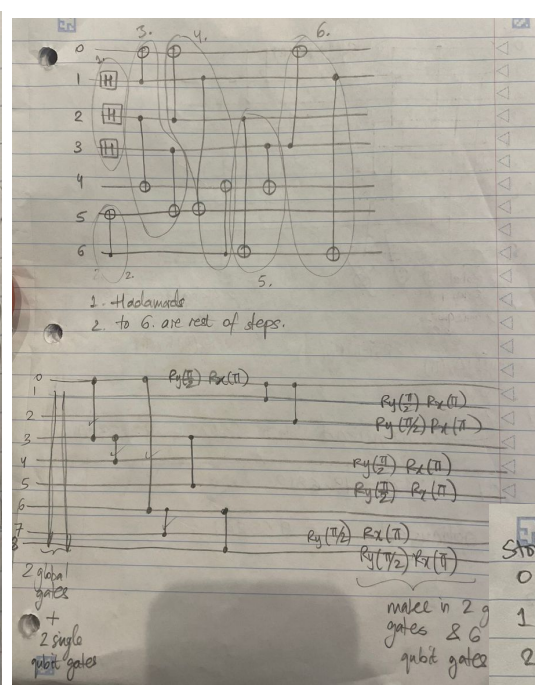 3. 4. 6.
0
1 H
2 H
3 H
4
5
6
2.
5.
1. Hadamards
2. to 6. are rest of steps.
0 Ry(π/2) Rx(π)
1 Ry(π/2) Rx(π)
2 Ry(π/2) Rx(π)
3
4 Ry(π/2) Rx(π)
5 Ry(π/2) Rx(π)
6
7 Ry(π/2) Rx(π)
8 Ry(π/2) Rx(π)
2 global
gates
+
2 single
qubit gates
make in 2 g
gates & 6
qubit gates
0
1
2